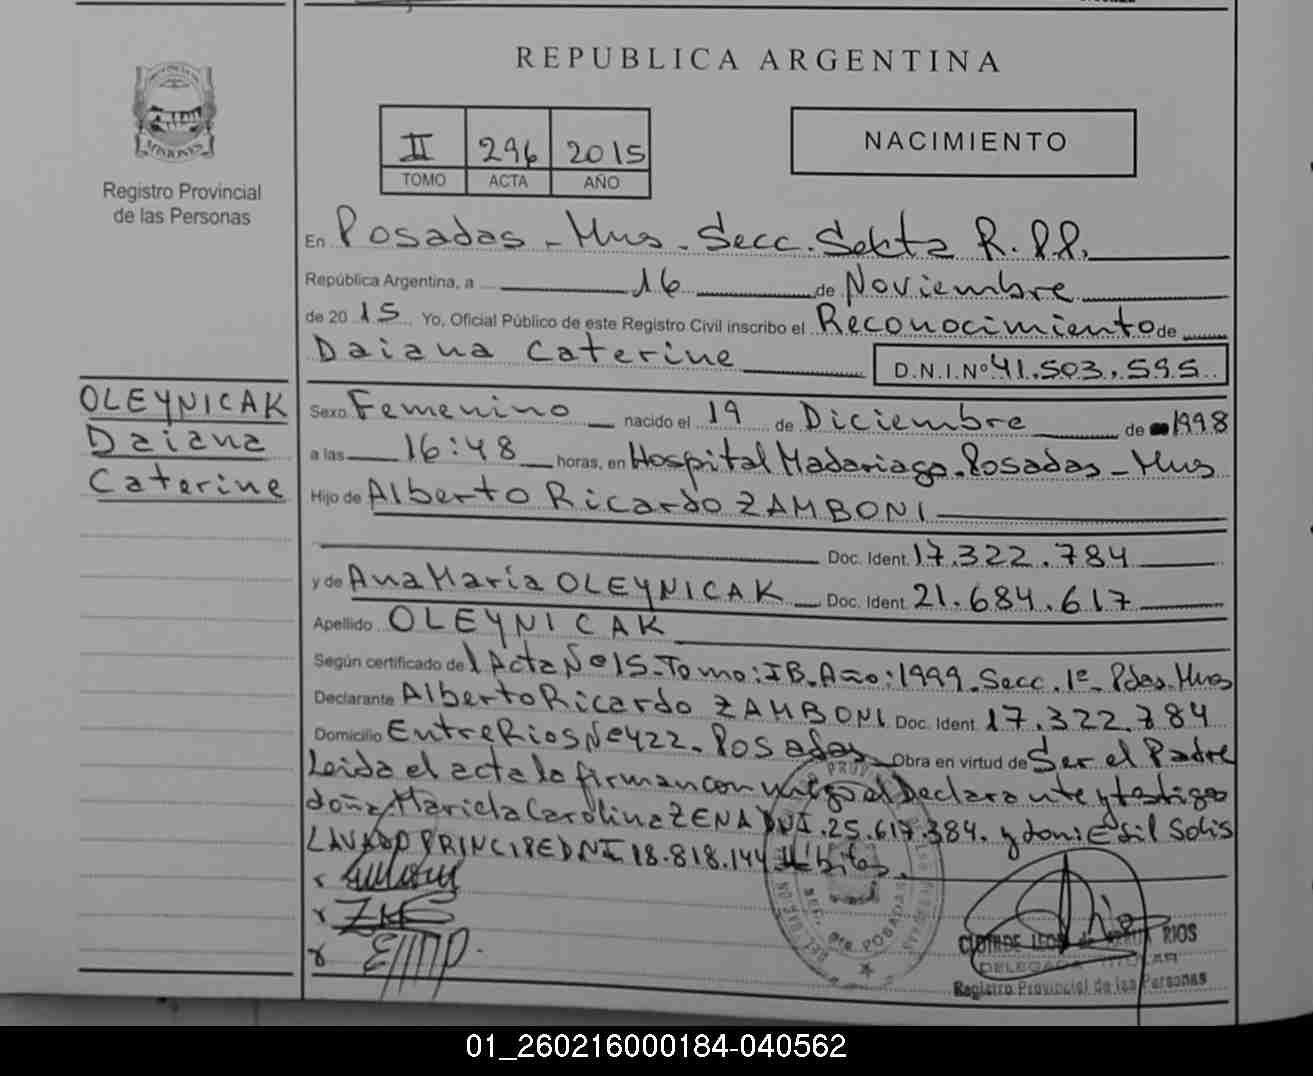 REPUBLICA ARGENTINA
MISIONES
Registro Provincial
de las Personas
II 296 2015
TOMO ACTA AÑO
NACIMIENTO
En Posadas - Mns - Secc. Sexta R.P.P.
República Argentina, a 16 de Noviembre
de 2015 Yo, Oficial Público de este Registro Civil inscribo el Reconocimiento de
Daiana Caterine D.N.I.Nº 41.503.595
OLEYNICAK
Daiana
Caterine
Sexo Femenino nacido el 19 de Diciembre de 1998
a las 16:48 horas, en Hospital Madariaga - Posadas - Mns
Hijo de Alberto Ricardo ZAMBONI
Doc. Ident. 17.322.784
y de Ana María OLEYNICAK Doc. Ident. 21.684.617
Apellido OLEYNICAK
Según certificado de Acta Nº 15 - Tomo: IB - Año: 1999 - Secc. 1º - Pdas. Mns
Declarante Alberto Ricardo ZAMBONI Doc. Ident. 17.322.784
Domicilio Entre Rios Nº 422 - Posadas Obra en virtud de Ser el Padre
Leida el acta la firman conmigo el Declarante y testigos
doña Mariela Carolina ZENA DNI. 25.617.384. y don: Esil Solis
LAVADO PRINCIPE DNI 18.818.144 Hábiles.
RIOS
DELEGADA TITULAR
Registro Provincial de las Personas
01_260216000184-040562